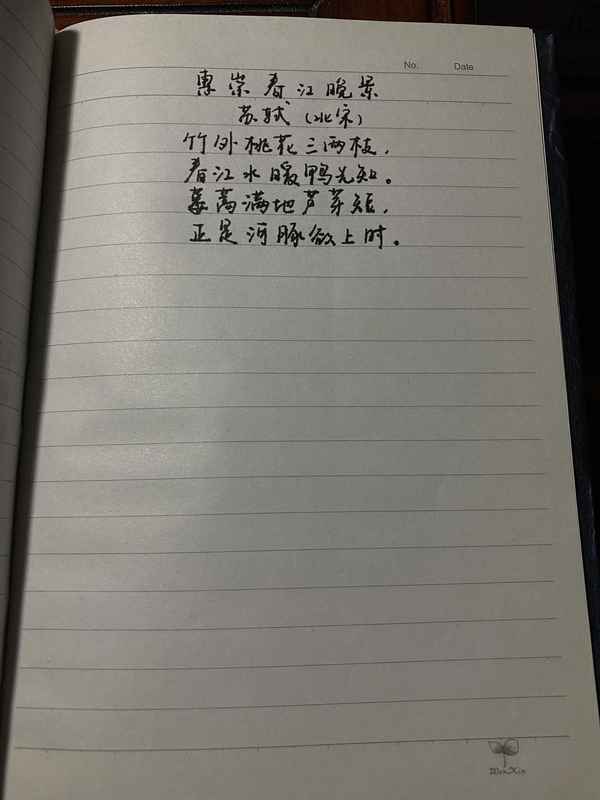 No. Date
惠崇春江晚景
苏轼（北宋）
竹外桃花三两枝，
春江水暖鸭先知。
蒌蒿满地芦芽短，
正是河豚欲上时。
WenXin